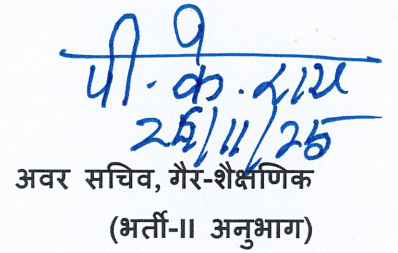 पी. के. राय
25/11/25
अवर सचिव, गैर-शैक्षणिक
(भर्ती-II अनुभाग)